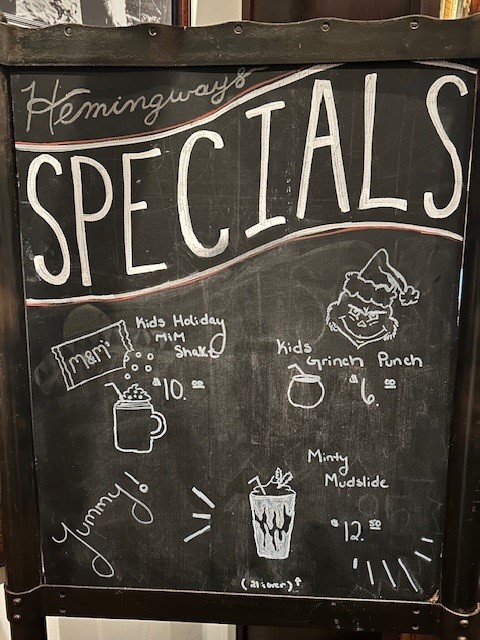 Hemingways
SPECIALS
Kids Holiday
MiM
Shake
m&m's
$10.00
Kids
Grinch Punch
$6.00
Minty
Mudslide
$12.50
Yummy!
(21 & over)